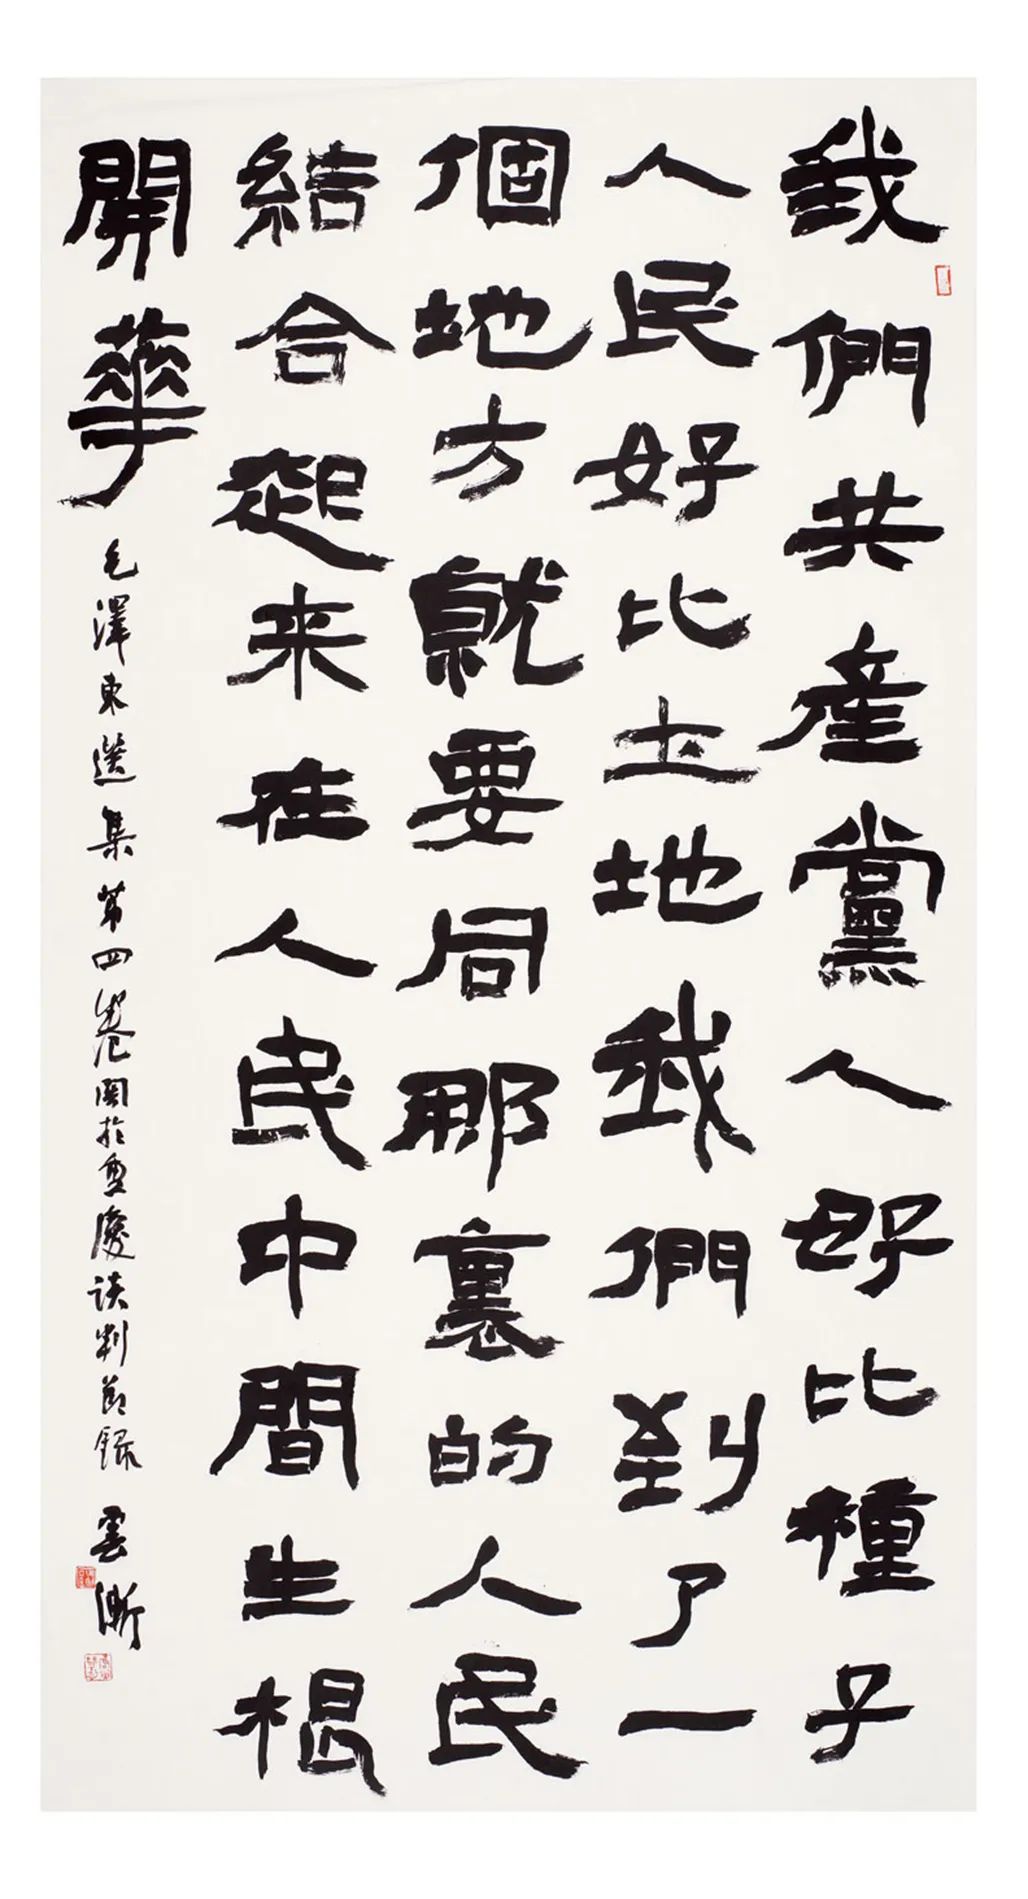 我們共產黨人好比種子
人民好比土地我們到了一
個地方就要同那裏的人民
結合起来在人民中間生根
開華
毛澤東選集第四卷關於重慶談判節録 雲漸